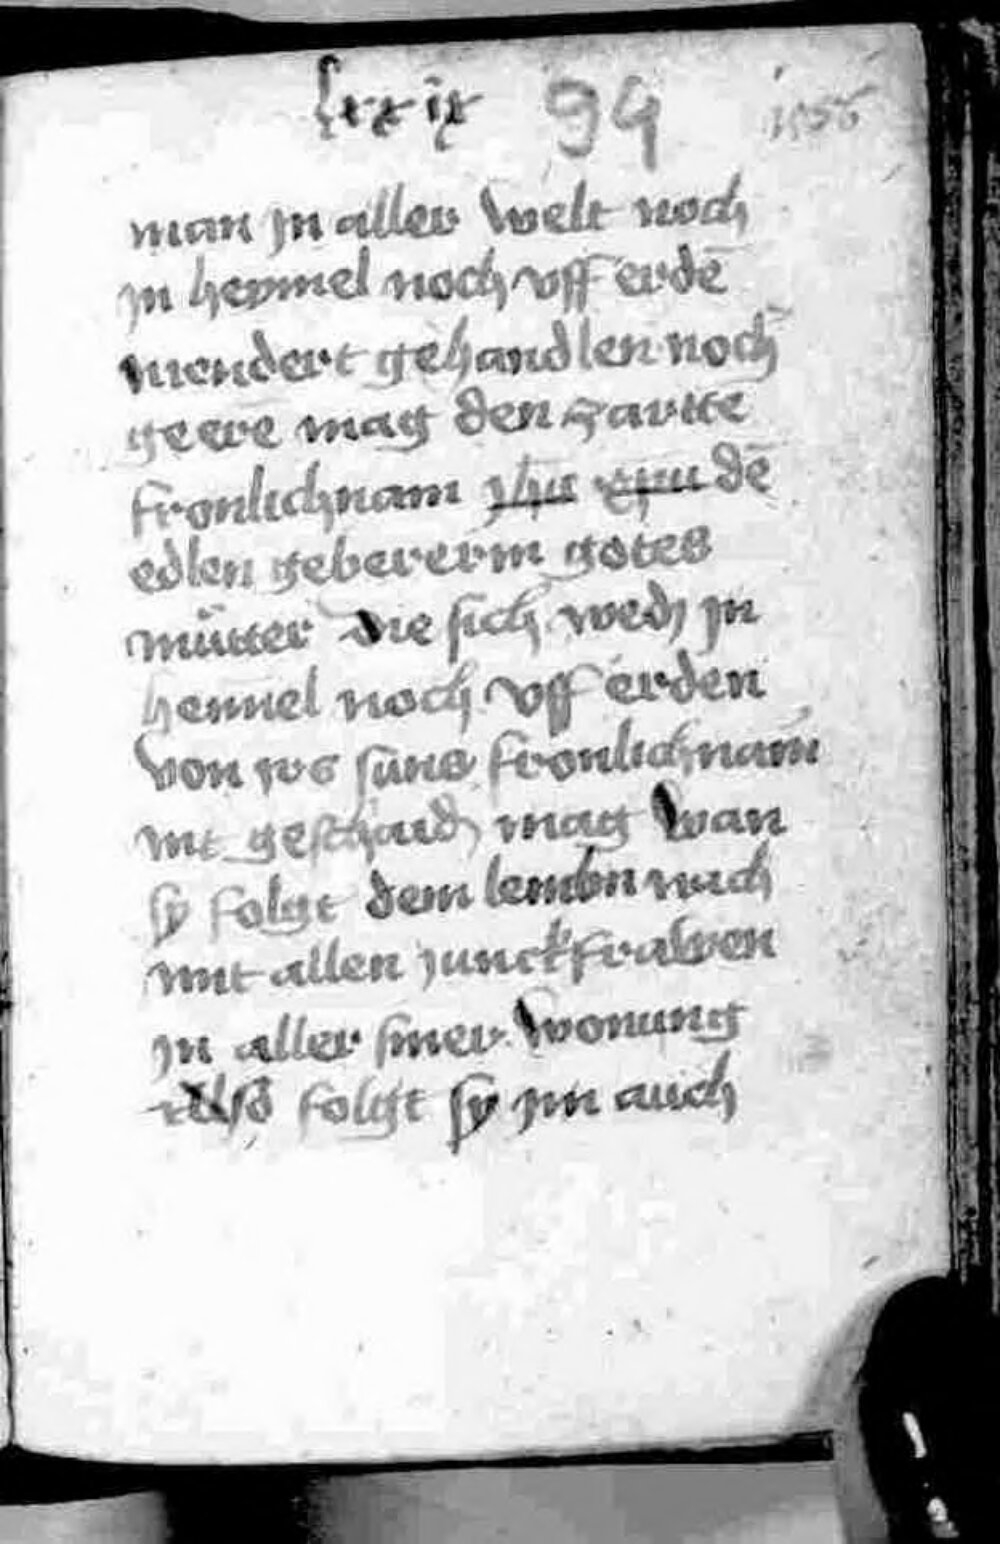 lxxix 94
man jn aller welt noch
jn heymel noch vff erdē
niendert gehandlen noch
geere mag den zartte
fronlichnam jhu xpu dē
edlen gebererin gotes
mütter die sich wed jn
hemel noch vff erden
von irs suns fronlichnam
nit geschaid mag wan
sy folgt dem lemlin nach
mit allen junckfrawen
jn aller siner wonung
Also folgt sy jm auch